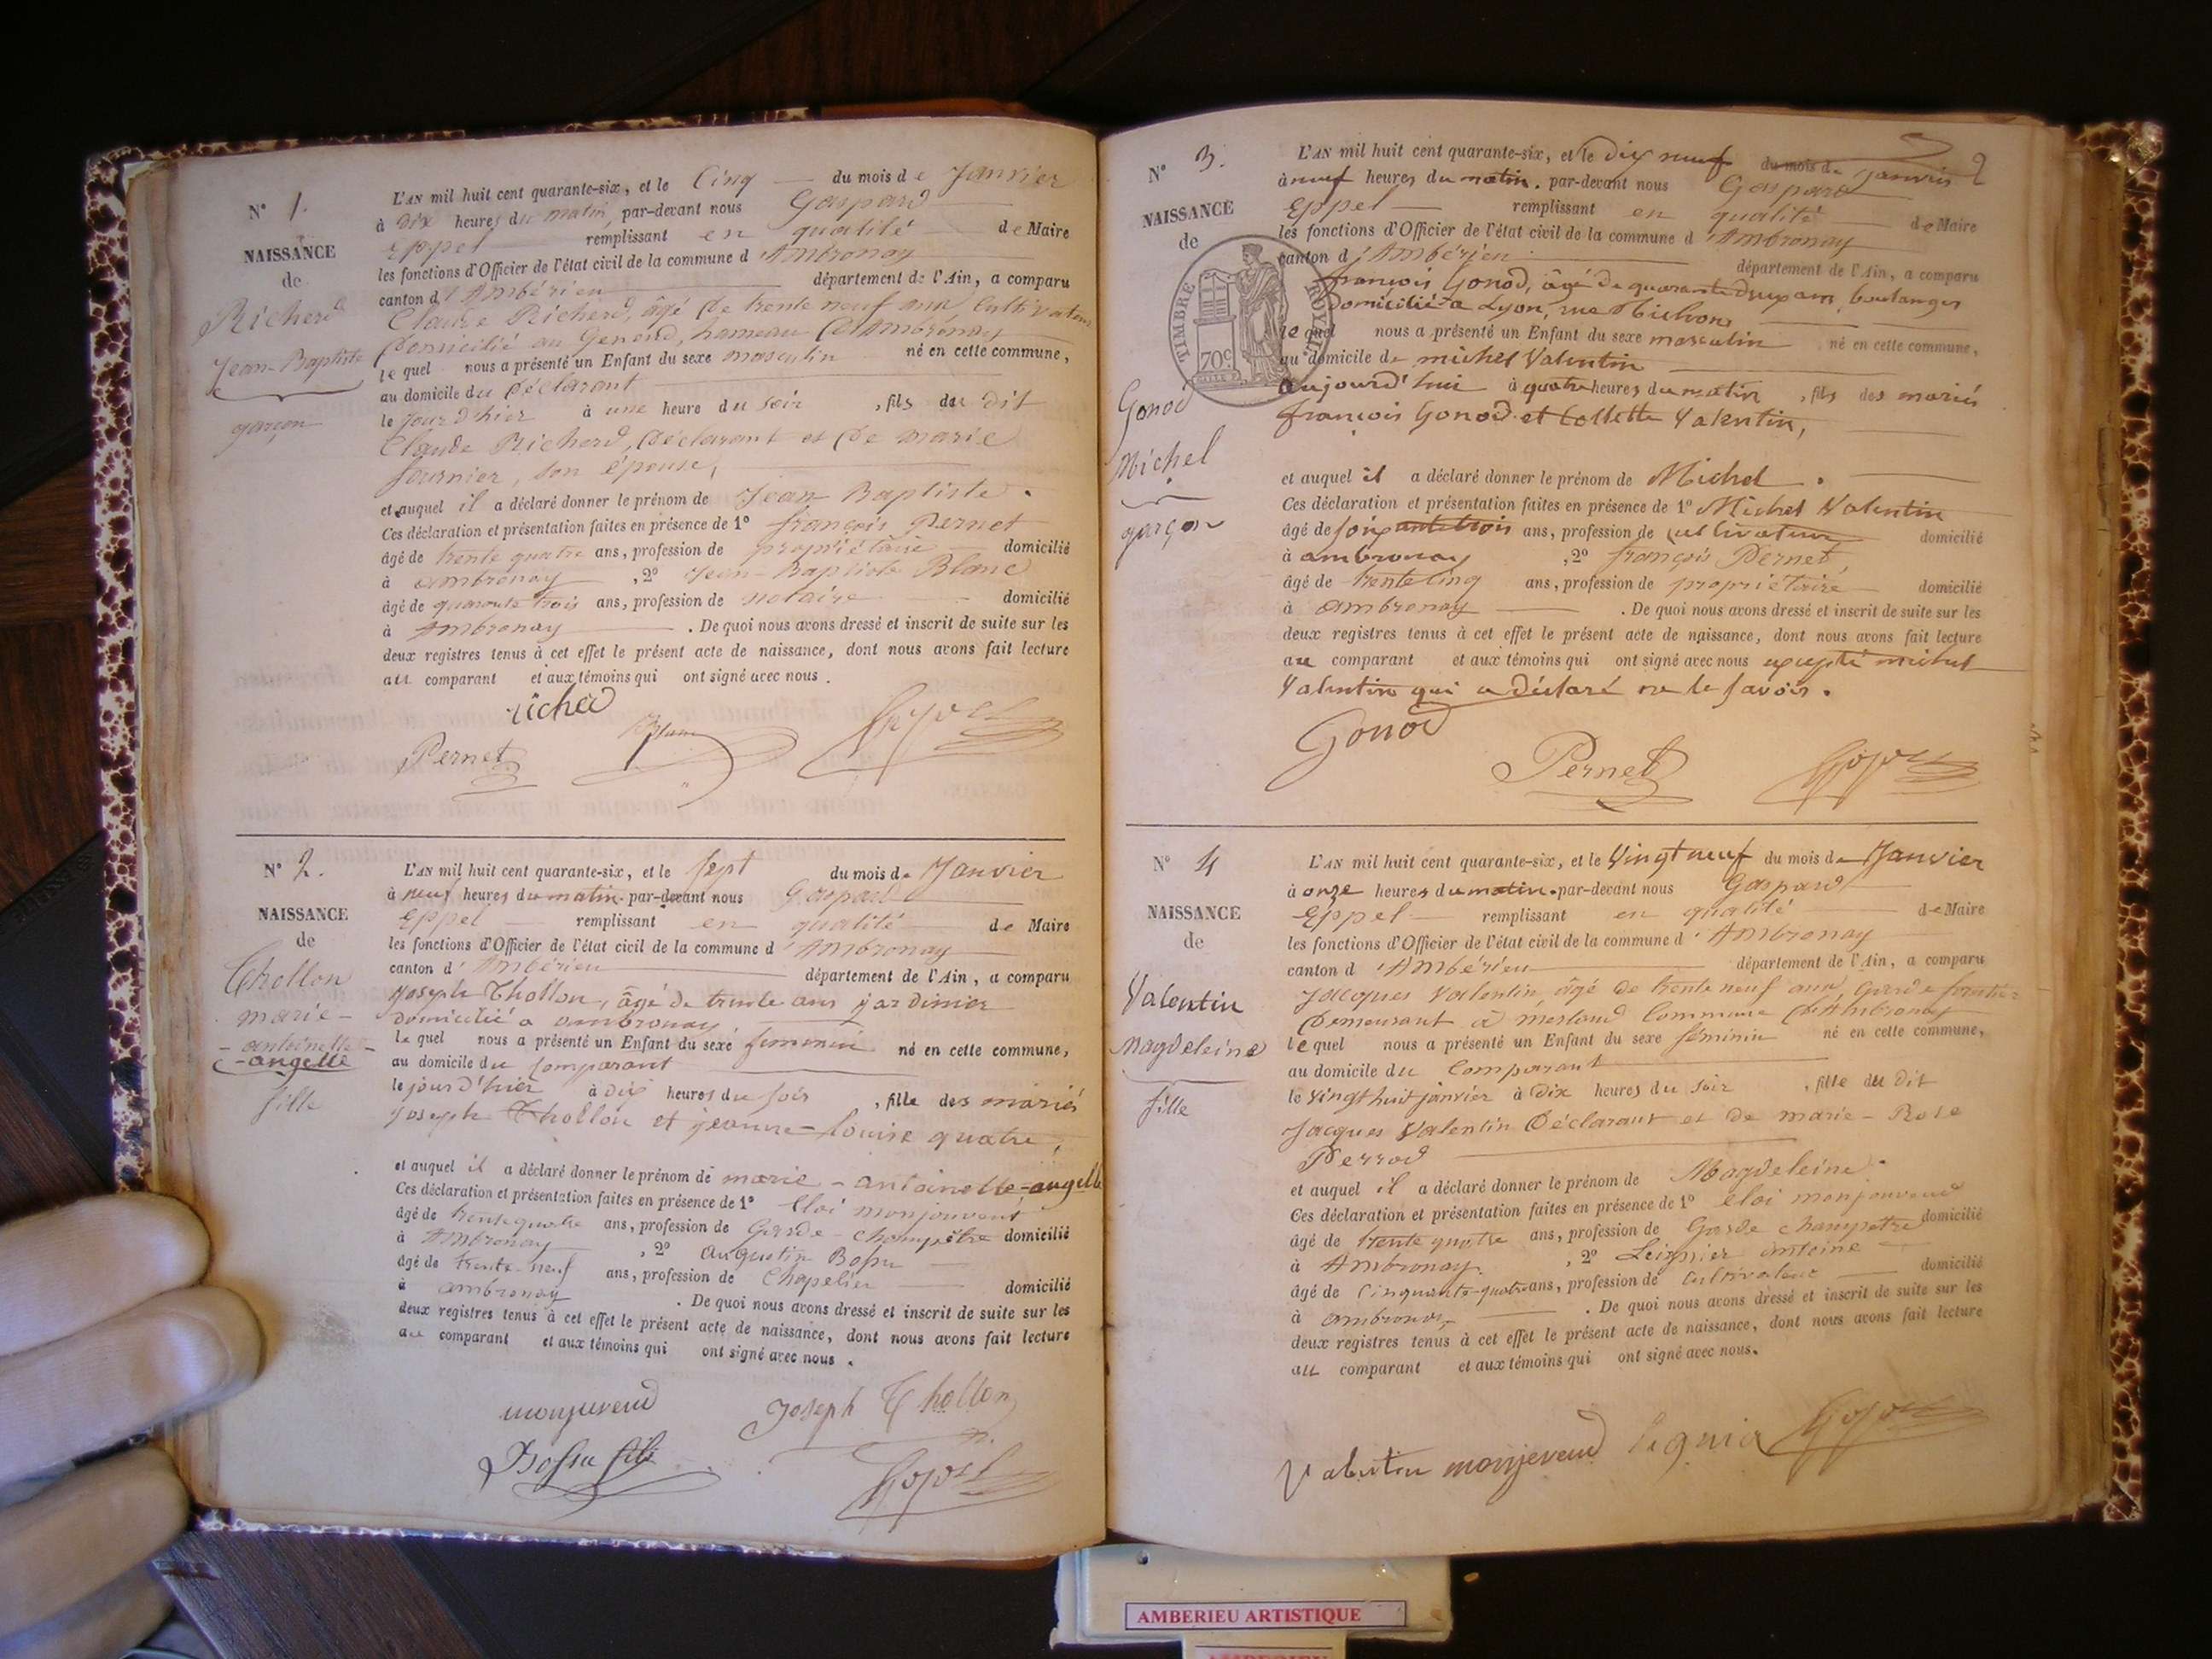 N° 1.
NAISSANCE
de
Richerd
Jean-Baptiste
garçon
L'AN mil huit cent quarante-six, et le Cinq du mois de Janvier
à dix heures du matin, par-devant nous Gaspard
Eppel remplissant en qualité de Maire
les fonctions d'Officier de l'état civil de la commune d'Ambronay
canton d'Ambérieu département de l'Ain, a comparu
Claude Richerd, âgé de trente neuf ans, Cultivateur
domicilié au Genoud, hameau d'Ambronay
lequel nous a présenté un Enfant du sexe masculin né en cette commune,
au domicile du déclarant
le jour d'hier à une heure du soir, fils du dit
Claude Richerd, déclarant et de marie
fournier, son épouse,
et auquel il a déclaré donner le prénom de Jean-Baptiste.
Ces déclaration et présentation faites en présence de 1° françois Pernet
âgé de trente quatre ans, profession de propriétaire domicilié
à ambronay, 2° Jean-Baptiste Blanc
âgé de quarante trois ans, profession de notaire domicilié
à Ambronay. De quoi nous avons dressé et inscrit de suite sur les
deux registres tenus à cet effet le présent acte de naissance, dont nous avons fait lecture
au comparant et aux témoins qui ont signé avec nous.
Pernet Blanc
N° 2.
NAISSANCE
de
Thollon
marie-
-antoinette-
-angelle
fille
L'AN mil huit cent quarante-six, et le sept du mois de Janvier
à neuf heures du matin par-devant nous Gaspard
Eppel remplissant en qualité de Maire
les fonctions d'Officier de l'état civil de la commune d'Ambronay
canton d'Ambérieu département de l'Ain, a comparu
Joseph Thollon, âgé de trente ans jardinier
domicilié a ambronay
lequel nous a présenté un Enfant du sexe feminin né en cette commune,
au domicile du comparant
le jour d'hier à dix heures du soir, fille des mariés
Joseph Thollon et jeanne-Louise quatre,
et auquel il a déclaré donner le prénom de marie-antoinette-angelle
Ces déclaration et présentation faites en présence de 1° Eloi monjouvent
âgé de trente quatre ans, profession de Garde-Champêtre domicilié
à Ambronay, 2° augustin Bossu
âgé de trente-neuf ans, profession de Chapelier domicilié
à ambronay. De quoi nous avons dressé et inscrit de suite sur les
deux registres tenus à cet effet le présent acte de naissance, dont nous avons fait lecture
au comparant et aux témoins qui ont signé avec nous.
monjuvend Joseph Thollon
Bossu fils
N° 3.
NAISSANCE
de
TIMBRE ROYAL
70c
Gonod
Michel
garçon
2
L'AN mil huit cent quarante-six, et le dix neuf du mois de janvier
à neuf heures du matin. par-devant nous Gaspard
Eppel remplissant en qualité de Maire
les fonctions d'Officier de l'état civil de la commune d'Ambronay
canton d'Ambérieu département de l'Ain, a comparu
françois Gonod, âgé de quarante deux ans, boulanger
domicilié a Lyon, rue
lequel nous a présenté un Enfant du sexe masculin né en cette commune,
au domicile de michel Valentin
aujourd'hui à quatre heures du matin, fils des mariés
françois Gonod et Collette Valentin,
et auquel il a déclaré donner le prénom de Michel.
Ces déclaration et présentation faites en présence de 1° Michel Valentin
âgé de soixante trois ans, profession de cultivateur domicilié
à ambronay, 2° françois Pernet,
âgé de trente cinq ans, profession de propriétaire domicilié
à ambronay. De quoi nous avons dressé et inscrit de suite sur les
deux registres tenus à cet effet le présent acte de naissance, dont nous avons fait lecture
au comparant et aux témoins qui ont signé avec nous excepté michel
Valentin qui a déclaré ne le savoir.
Gonod
Pernet
N° 4
NAISSANCE
de
Valentin
Magdeleine
fille
L'AN mil huit cent quarante-six, et le Vingt neuf du mois de Janvier
à onze heures du matin. par-devant nous Gaspard
Eppel remplissant en qualité de Maire
les fonctions d'Officier de l'état civil de la commune d'Ambronay
canton d'Ambérieu département de l'Ain, a comparu
Jacques Valentin âgé de trente neuf ans, Garde forestier
Demeurant à merland Commune d'Ambronay
lequel nous a présenté un Enfant du sexe féminin né en cette commune,
au domicile du Comparant
le vingt huit janvier à dix heures du soir, fille du dit
Jacques Valentin Déclarant et de marie-Rose
Perrod
et auquel il a déclaré donner le prénom de Magdeleine.
Ces déclaration et présentation faites en présence de 1° Eloi monjouvend
âgé de trente quatre ans, profession de Garde champetre domicilié
à Ambronay, 2° Leignier antoine
âgé de Cinquante-quatre ans, profession de Cultivateur domicilié
à ambronay. De quoi nous avons dressé et inscrit de suite sur les
deux registres tenus à cet effet le présent acte de naissance, dont nous avons fait lecture
au comparant et aux témoins qui ont signé avec nous.
Valentin monjeuvend Légnier
AMBERIEU ARTISTIQUE
AMBERIEU